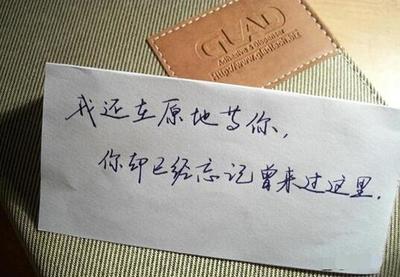 GLAD
Adhesive & Dispenser
我还在原地等你,
你却已经忘记曾来过这里.